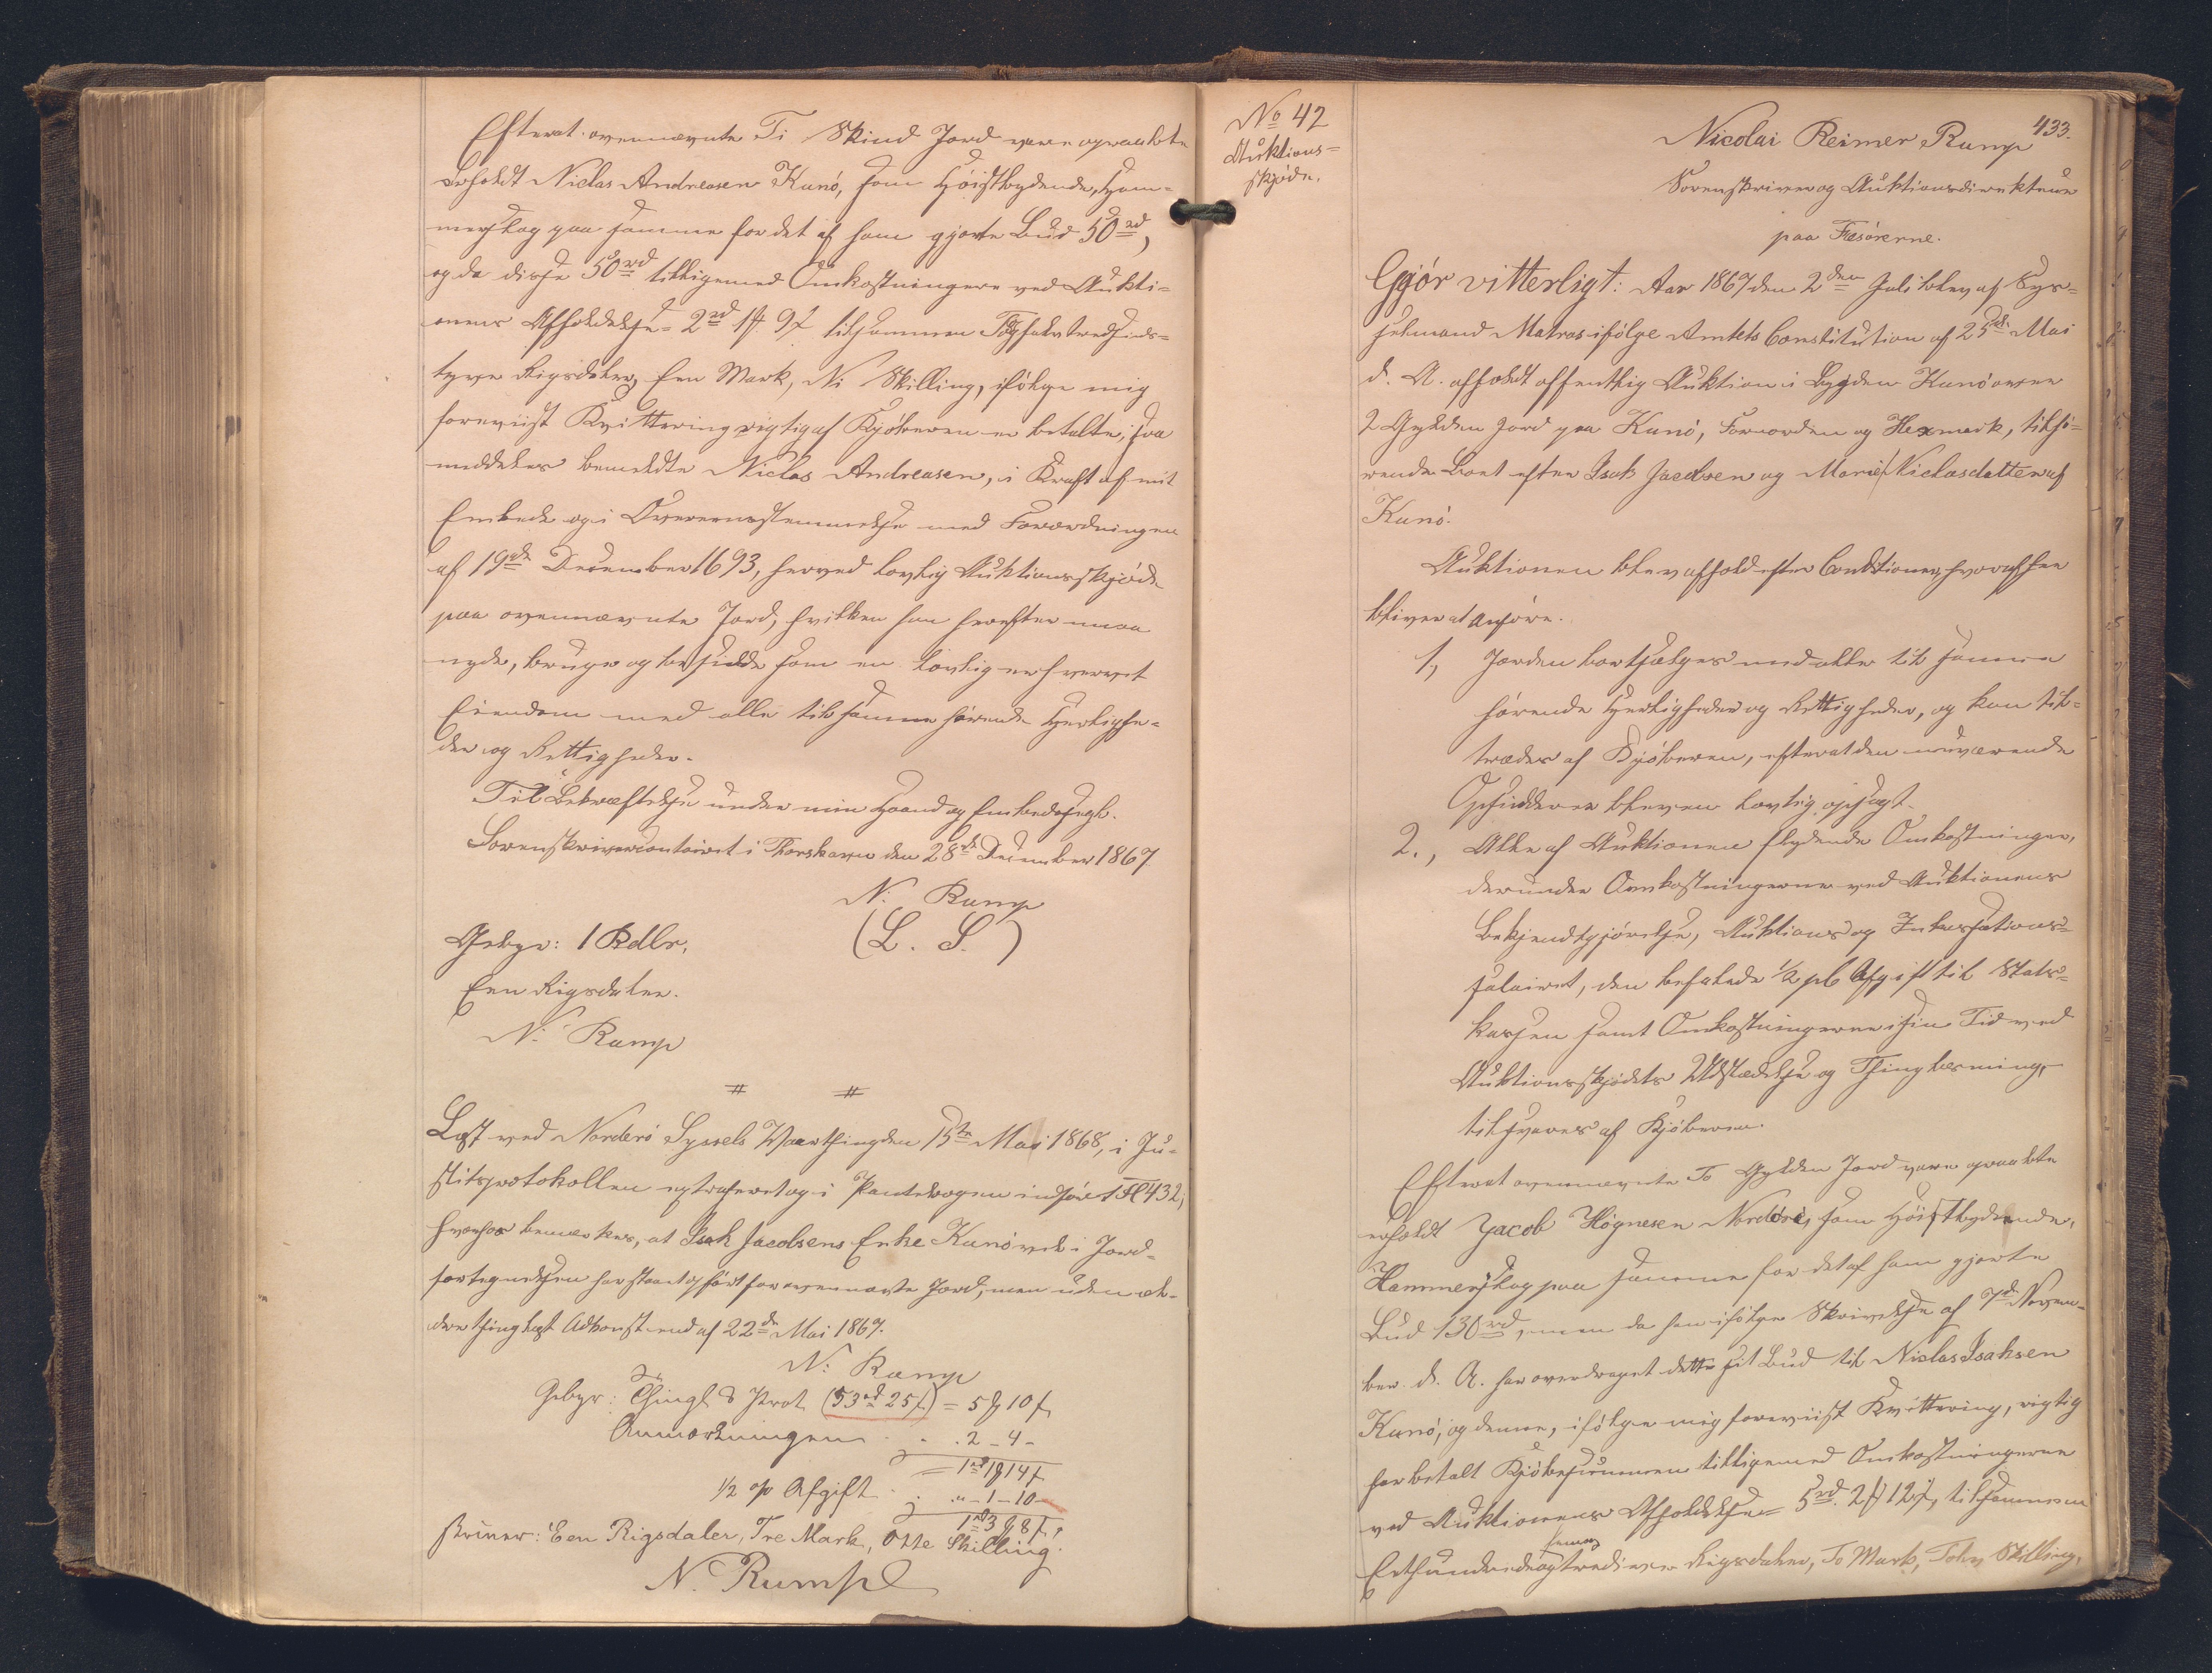 Efterat ovennævnte Ti Skind Jord vare opraabte
erholdt Niclas Andreasen Kunö, som Höistbydende, Ham-
merslag paa samme for det af ham gjorte Bud 50 rd,
og da disse 50 rd tilligemed Omkostningerne ved Aukti-
onens Afholdelse = 2 rd 1 ₰ 9 ß tilsammen To og halvtredsinds-
tyve Rigsdaler, Een Mark, Ni Skilling, ifölge mig
foreviist Kvittering rigtig af Kjöberen er betalte, saa
meddeles bemeldte Niclas Andreasen, i Kraft af mit
Embede og i Overeensstemmelse med Forordningen
af 19de December 1693, herved lovlig Auktionsskjöde
paa ovennævnte Jord, hvilken han herefter maa
nyde, bruge og besidde som en lovlig erhvervet
Eiendom med alle til samme hörende Herlighe-
der og Rettigheder.
Til Bekræftelse under min Haand og Embedssegl.
Sorenskrivercontoiret i Thorshavn den 28de December 1867.
N: Rump
(L. S.)
Gebyr: 1 Rdlr.
Een Rigsdaler.
N. Rump
# #
Læst ved Norderö Syssels Vaarthing den 15de Mai 1868, i Ju-
stitsprotokollen extraheret og i Pantebogen indfört Fol 432,
hvorhos bemærkes, at Isak Jacobsens Enke Kunö vel i Jord-
fortegnelsen har staaet opfört for ovennævnte Jord, men uden æl-
dre thinglæst Adkomst end af 22de Mai 1867.
N: Rump
Gebyr: Thingl & Prot (53 rd 25 ß) = 5 ₰ 10 ß
Anmærkningen . . 2 - 4 -
= 1 rd 1 ₰ 14 ß
1/2 % Afgift . . „ - 1 - 10 -
1 rd 3 ₰ 8 ß,
skriver: Een Rigsdaler, Tre Mark, Otte Skilling.
N. Rump
No 42
Auktions=
skjöde.
433.
Nicolai Reimer Rump
Sorenskriver og Auktionsdirekteur
paa Færöerne.
Gjör vitterligt: Aar 1867 den 2den Juli blev af Sys=
selmand Matras ifölge Amtets Constitution af 25de Mai
d. A. afholdt offentlig Auktion i Bygden Kunö over
2 Gylden Jord paa Kunö, Fornorden og Hexmark, tilhö-
rende Boet efter Isak Jacobsen og Marie Niclasdatter af
Kunö.
Auktionen blev afholdt efter Conditioner, hvoraf her
bliver at anföre.
1, Jorden bortsælges med alle til samme
hörende Herligheder og Rettigheder, og kan til=
trædes af Kjöberen, efterat den nuværende
Opsidder er bleven lovlig opsagt.
2., Alle af Auktionen flydende Omkostninger,
derunder Omkostningerne ved Auktionens
Bekjendtgjörelse, Auktions og Inkassations=
salairet, den befalede 1/2 pC Afgift til Stats=
kassen samt Omkostningerne i sin Tid ved
Auktionsskjödets Udstædelse og Thinglæsning,
tilsvares af Kjöberen.
Efterat ovennævnte To Gylden Jord vare opraabte
erholdt Jacob Högnesen Norddöre, som Höistbydende,
Hammerslag paa samme for det af ham gjorte
Bud 130 rd, men da han ifölge Skrivelse af 7de Novem-
ber d. A. har overdraget dette sit Bud til Niclas Isaksen
Kunö, og denne, ifölge mig foreviist Kvittering, rigtig
har betalt Kjöbesummen tilligemed Omkostningerne
ved Auktionens Afholdelse = 5 rd. 2 ₰ 12 ß, tilsammen
Ethundrede fem og tredive Rigsdaler, To Mark, Tolv Skilling,